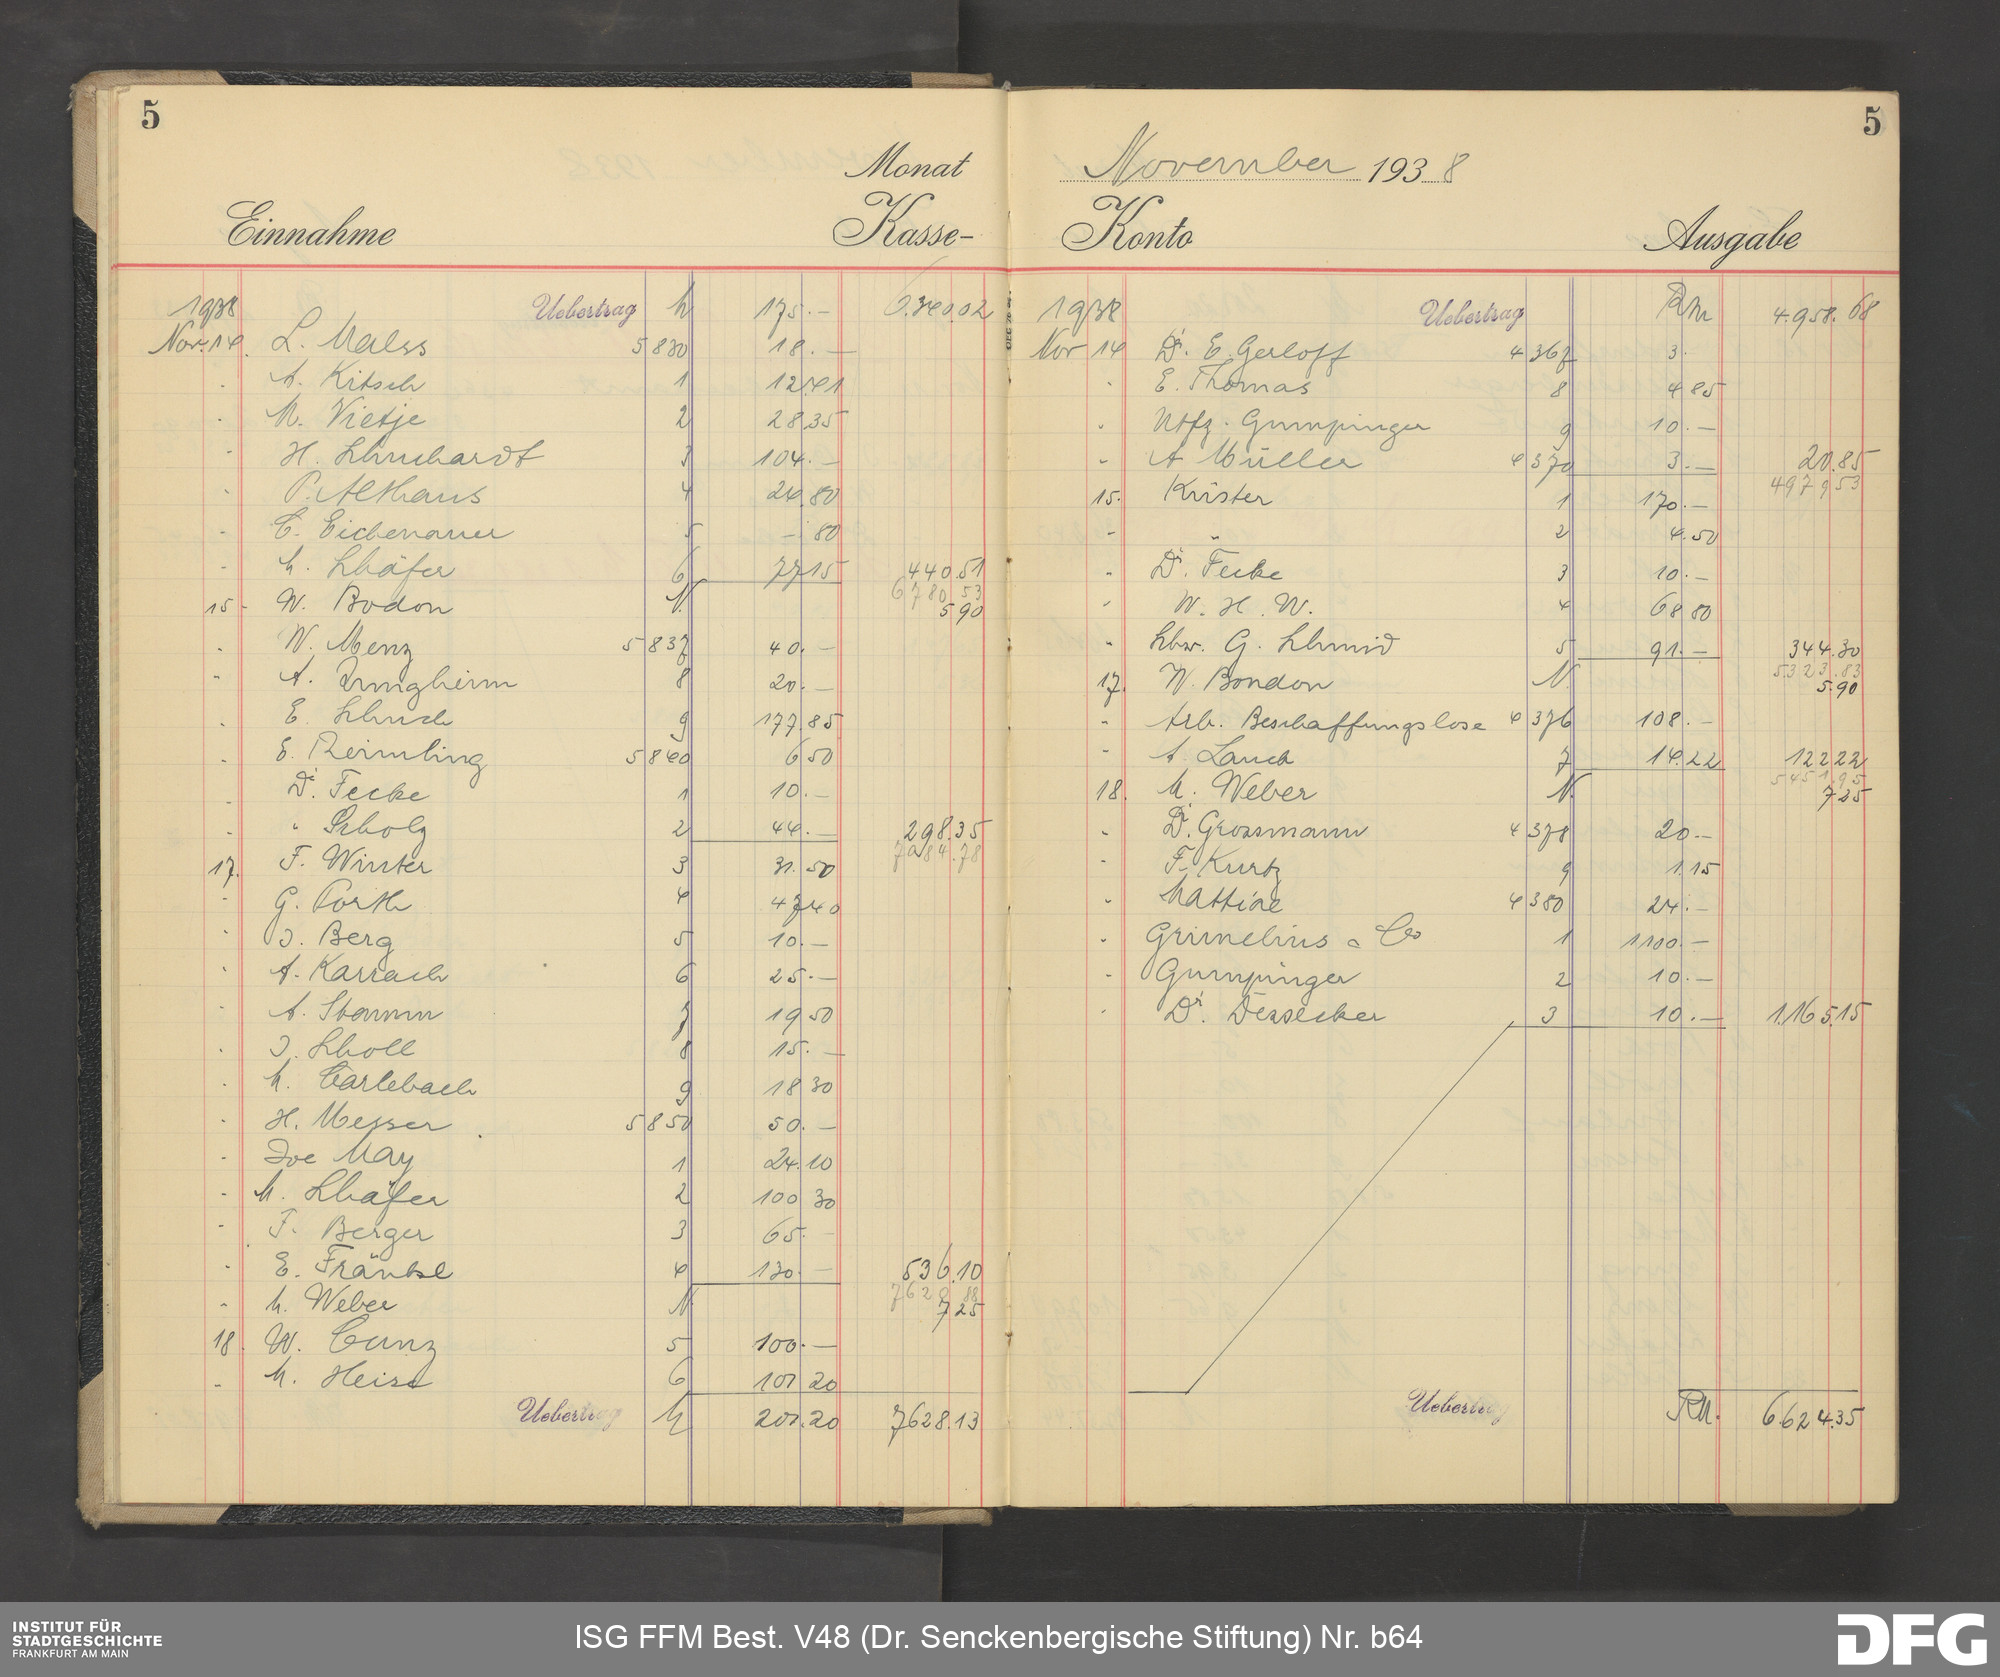 5
Monat
Einnahme Kasse-
1938 Uebertrag 175.— 6.340.02
Nov. 14. L. Malss 5830 18.—
" A. Kitsch 1 12.41
" M. Vietje 2 28.35
" H. 3 104.—
" P. Althaus 4 24.80
" C. Eichenauer 5 —.80
" M. Schäfer 6 77.15 440.51
6780.53
15. W. Bodon N. 5.90
" W. Menz 5837 40.—
" A. Jungheim 8 20.—
" E. Schuch 9 177.85
" E. Reimling 5840 6.50
" Dr. Fecke 1 10.—
" " Scholz 2 44.— 298.35
7084.78
17. F. Winter 3 31.50
" G. Porth 4 47.40
" J. Berg 5 10.—
" A. Karrach 6 25.—
" A. Stamm 7 19.50
" J. Scholl 8 15.—
" M. Carlebach 9 18.30
" H. Messer 5850 50.—
" Joe May 1 24.10
" M. Schäfer 2 100.30
" F. Berger 3 65.—
" E. Fränkel 4 130.— 536.10
7620.88
" M. Weber N. 7.25
18. W. Cunz 5 100.—
" M. Heise 6 101.20
Uebertrag 201.20 7628.13
5
November 1938
Konto Ausgabe
1938 Uebertrag RM 4.958.68
Nov 14 Dr. E. Gerloff 4367 3.
" E. Thomas 8 4.85
" Gumpinger 9 10.—
" A. Müller 4370 3.— 20.85
4979.53
15. Krister 1 170.—
" " 2 4.50
" Dr. Fecke 3 10.—
" W. H. W. 4 68.80
" Schw. G. Schmid 5 91.— 344.30
5323.83
17. W. Bondon N. 5.90
" Arb. Beschaffungslose 4376 108.—
" A. Lauck 7 14.22 122.22
5451.95
18. M. Weber N. 7.25
" Dr. Grossmann 4378 20.—
" F. Kurtz 9 1.15
" Mattiae 4380 24.—
" Grimelius & Co 1 1100.—
" Gumpinger 2 10.—
" Dr. Dessecker 3 10.— 1.165.15
Uebertrag RM. 6.624.35
INSTITUT FÜR
STADTGESCHICHTE
FRANKFURT AM MAIN
ISG FFM Best. V48 (Dr. Senckenbergische Stiftung) Nr. b64
DFG